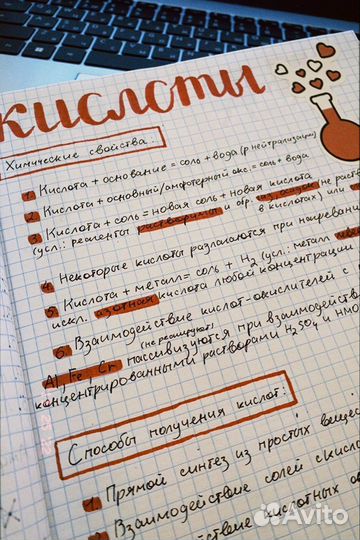 Кислоты
Химические свойства:
1. Кислота + основание = соль + вода (р нейтрализации)
2. Кислота + основный/амфотерный окс. = соль + вода
3. Кислота + соль = новая соль + новая кислота
(усл.: реагенты растворимы и обр. газ, осадок (не раств
в кислотах) или
4. Некоторые кислоты разлагаются при нагревани
5. Кислота + металл = соль + H2 (усл.: металл
искл. азотная кислота любой концентрации
6. Взаимодействие кислот-окислителей с
(не реагируют)
Al, Fe, Cr пассивизуются при взаимодейств
концентрированными растворами H2SO4 и HNO
Способы получения кислот:
1. Прямой синтез из простых вещес
2. Взаимодействие солей с кисл
действие кислотных о
Avito